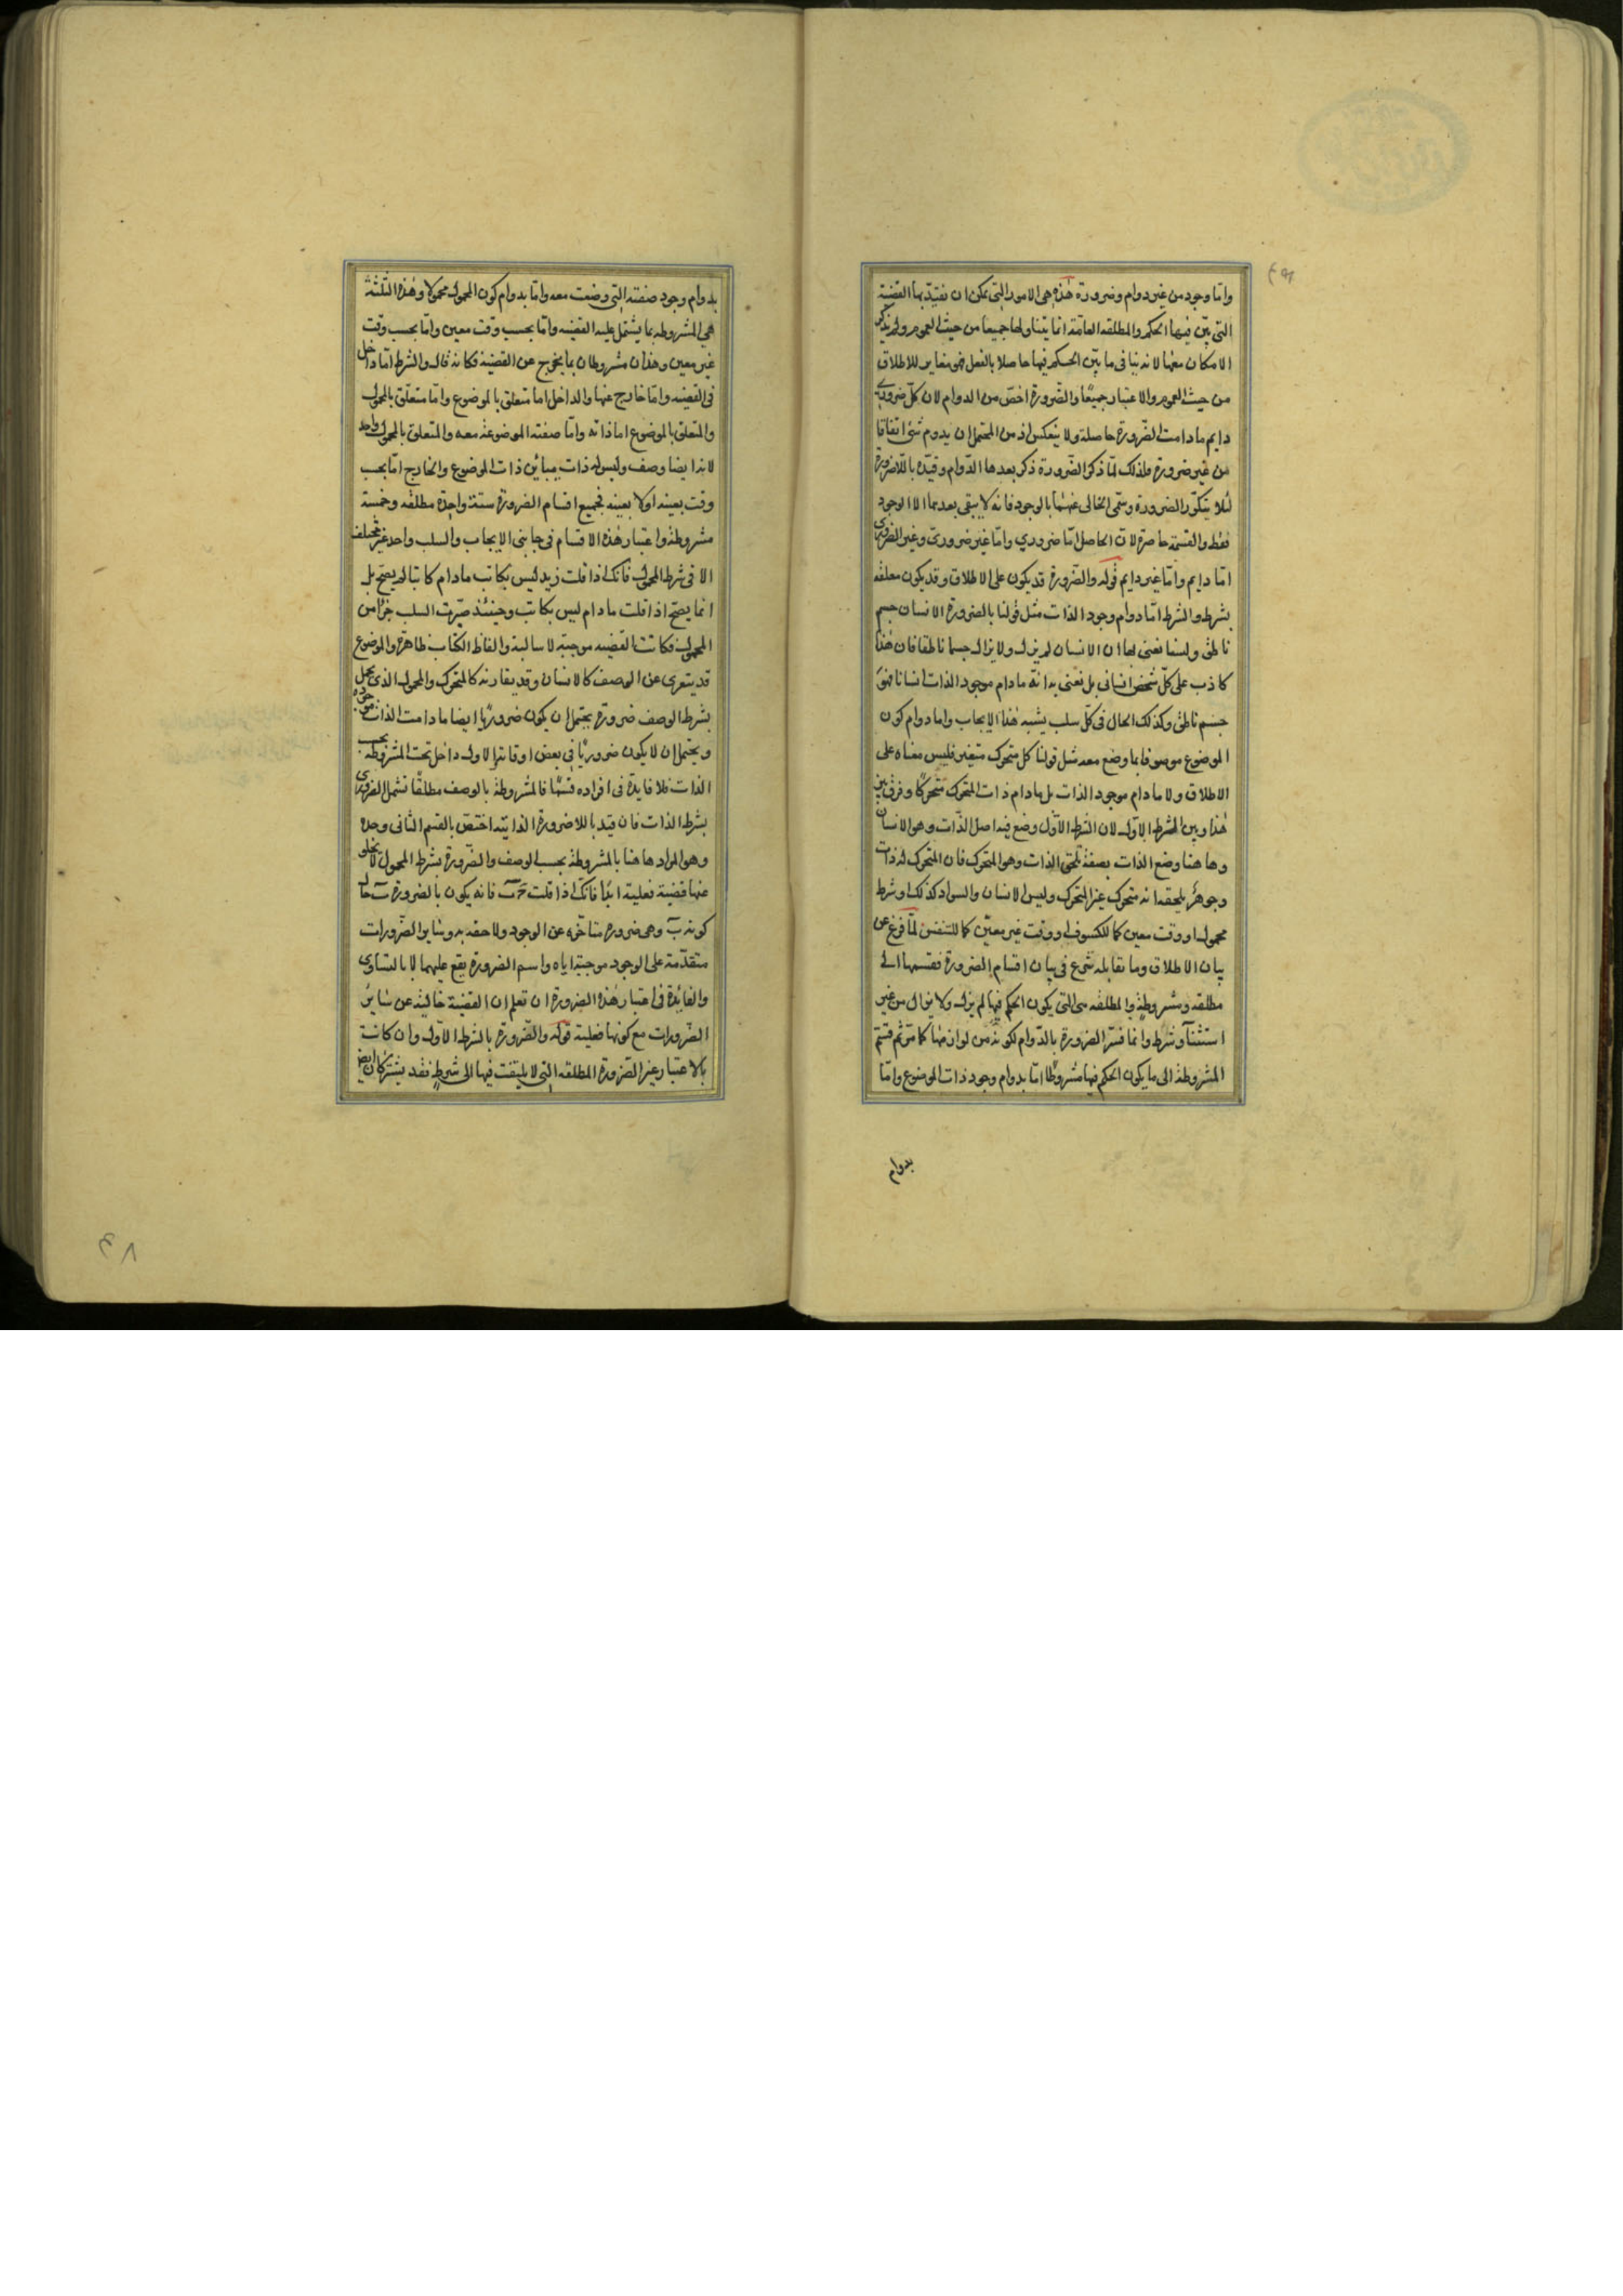 واما وجود من غير دوام وضرورة هذه هى الامور التى يمكن ان نقيد بها القضية
التى بين فيها الحكم والمطلقه العامة انما يتناولها جميعا من حيث العموم ولم يذكر
الامكان معها لانه ينافى ما بين الحكم فيها حاصلا بالفعل فهو مغاير للاطلاق
من حيث العموم والاعتبار جميعًا والضرورة اخصّ من الدوام لان كل ضرورى
دايم مادامت الضرورة حاصلة ولا ينعكس اذ من المحتمل ان يدوم شئ اتفاقا
من غير ضرورة فلذلك لمّا ذكر الضرورة ذكر بعدها الدوام وقيّده باللاضرورة
لئلا يتكرّر الضرورة وسمّى الخالى عنهما بالوجود فانه لا يبقى بعدهما الا الوجود
فقط والقسمة حاصرة لان الحاصل امّا ضروري وامّا غير ضرورىّ وغير الضرورى
امّا دايم وامّا غير دايم قوله والضرورة قد يكون على الاطلاق وقد يكون معلقه
بشرط والشرط امّا دوام وجود الذات مثل قولنا بالضرورة الانسان جسم
ناطق ولسنا نعنى بها ان الانسان لم يزل ولا يزال جسما ناطقا فان هذا
كاذب على كلّ شخص انسانى بل نعنى به انه مادام موجود الذات انسانا فهو
جسم ناطق وكذلك الحال فى كلّ سلب يشبه هذا الايجاب واما دوام كون
الموضوع موصوفا بما وضع معه مثل قولنا كل متحرك متغير فليس معناه على
الاطلاق ولا مادام موجود الذات بل مادام ذات المتحرك متحركًا وفرق بين
هذا وبين الشرط الاوّل لان الشرط الاوّل وضع فيه اصل الذات وهو الانسان
وها هنا وضع الذات بصفة تلحق الذات وهو المتحرك فان المتحرك له ذات
وجوهرٌ يلحقه انه متحرك غير المتحرك وليس الانسان والسواد كذلك او شرط
محمول او وقت معين كما للكسوف او وقت غير معيّن كما للتنفس لمّا فرغ عن
بيان الاطلاق وما يقابله شرع فى بيان اقسام الضرورة فقسمها الى
مطلقه ومشروطة والمطلقه هى التى يكون الحكم فيها لم يزل ولا يزال من غير
استثنآء وشرط وانما فسّر الضرورة بالدّوام لكونه من لوازمها كما مرّ ثم قسّم
المشروطة الى ما يكون الحكم فيها مشروطًا امّا بدوام وجود ذات الموضوع وامّا
بدوام
بدوام وجود صفته التى وضعت معه وامّا بدوام كون المحمول محمولا وهذه الثلثة
هى المشروطه بما يشتمل عليه القضيه وامّا بحسب وقت معين وامّا بحسب وقت
غير معين وهذان مشروطان بما يخرج عن القضية فكانه قال والشرط امّا داخل
فى القضيه وامّا خارج عنها والداخل اما متعلق بالموضوع وامّا متعلّق بالمحمول
والمتعلق بالموضوع اما ذاته وامّا صفته الموضوعة معه والمتعلق بالمحمول واحد
لانه ايضا وصف وليس له ذات يباين ذات الموضوع والخارج امّا بحسب
وقت بعينه او لا بعينه فجميع اقسام الضرورة ستة واحدة مطلقه وخمسة
مشروطة واعتبار هذه الاقسام فى جانبى الايجاب والسلب واحد غير مختلف
الا فى شرط المحمول فانك اذا قلت زيد ليس بكاتب مادام كاتبا لم يصح بل
انما يصحّ اذا قلت مادام ليس بكاتب وحينئذ صيّرت السلب جزأ من
المحمول فكانت القضيه موجبة لا سالبة والفاظ الكتاب ظاهرة والموضوع
قد يتعرى عن الوصف كالانسان وقد يقارنه كالمتحرك والمحمول الذى يحمل
بشرط الوصف ضرورة يحتمل ان يكون ضروريًا ايضا مادامت الذات موجوده
ويحتمل ان لا يكون ضروريًا فى بعض اوقاتها الاول داخل تحت المشروطة بحسب
الذات فلا فايدة فى افراده قسمًا فالمشروطة بالوصف مطلقًا تشمل الضرورى
بشرط الذات فان قيد باللاضرورة الذاتية اختصّ بالقسم الثانى وحده
وهو المراد ها هنا بالمشروطة بحسب الوصف والضرورة بشرط المحمول لا يخلو
عنها قضية فعلية ابدًا فانك اذا قلت فانه يكون بالضرورة حال
كونه ب وهى ضرورة متاخره عن الوجود ولاحقه به وساير الضرورات
متقدّمة على الوجود موجبة اياه واسم الضرورة يقع عليهما لا بالتساوى
والفائدة فى اعتبار هذه الضرورة ان تعلم ان القضية خالية عن ساير
الضرورات مع كونها فعلية قوله والضرورة بالشرط الاوّل وان كانت
بالاعتبار غير الضرورة المطلقه التى لا يلتفت فيها الى شرط فقد يشتركان ايضا